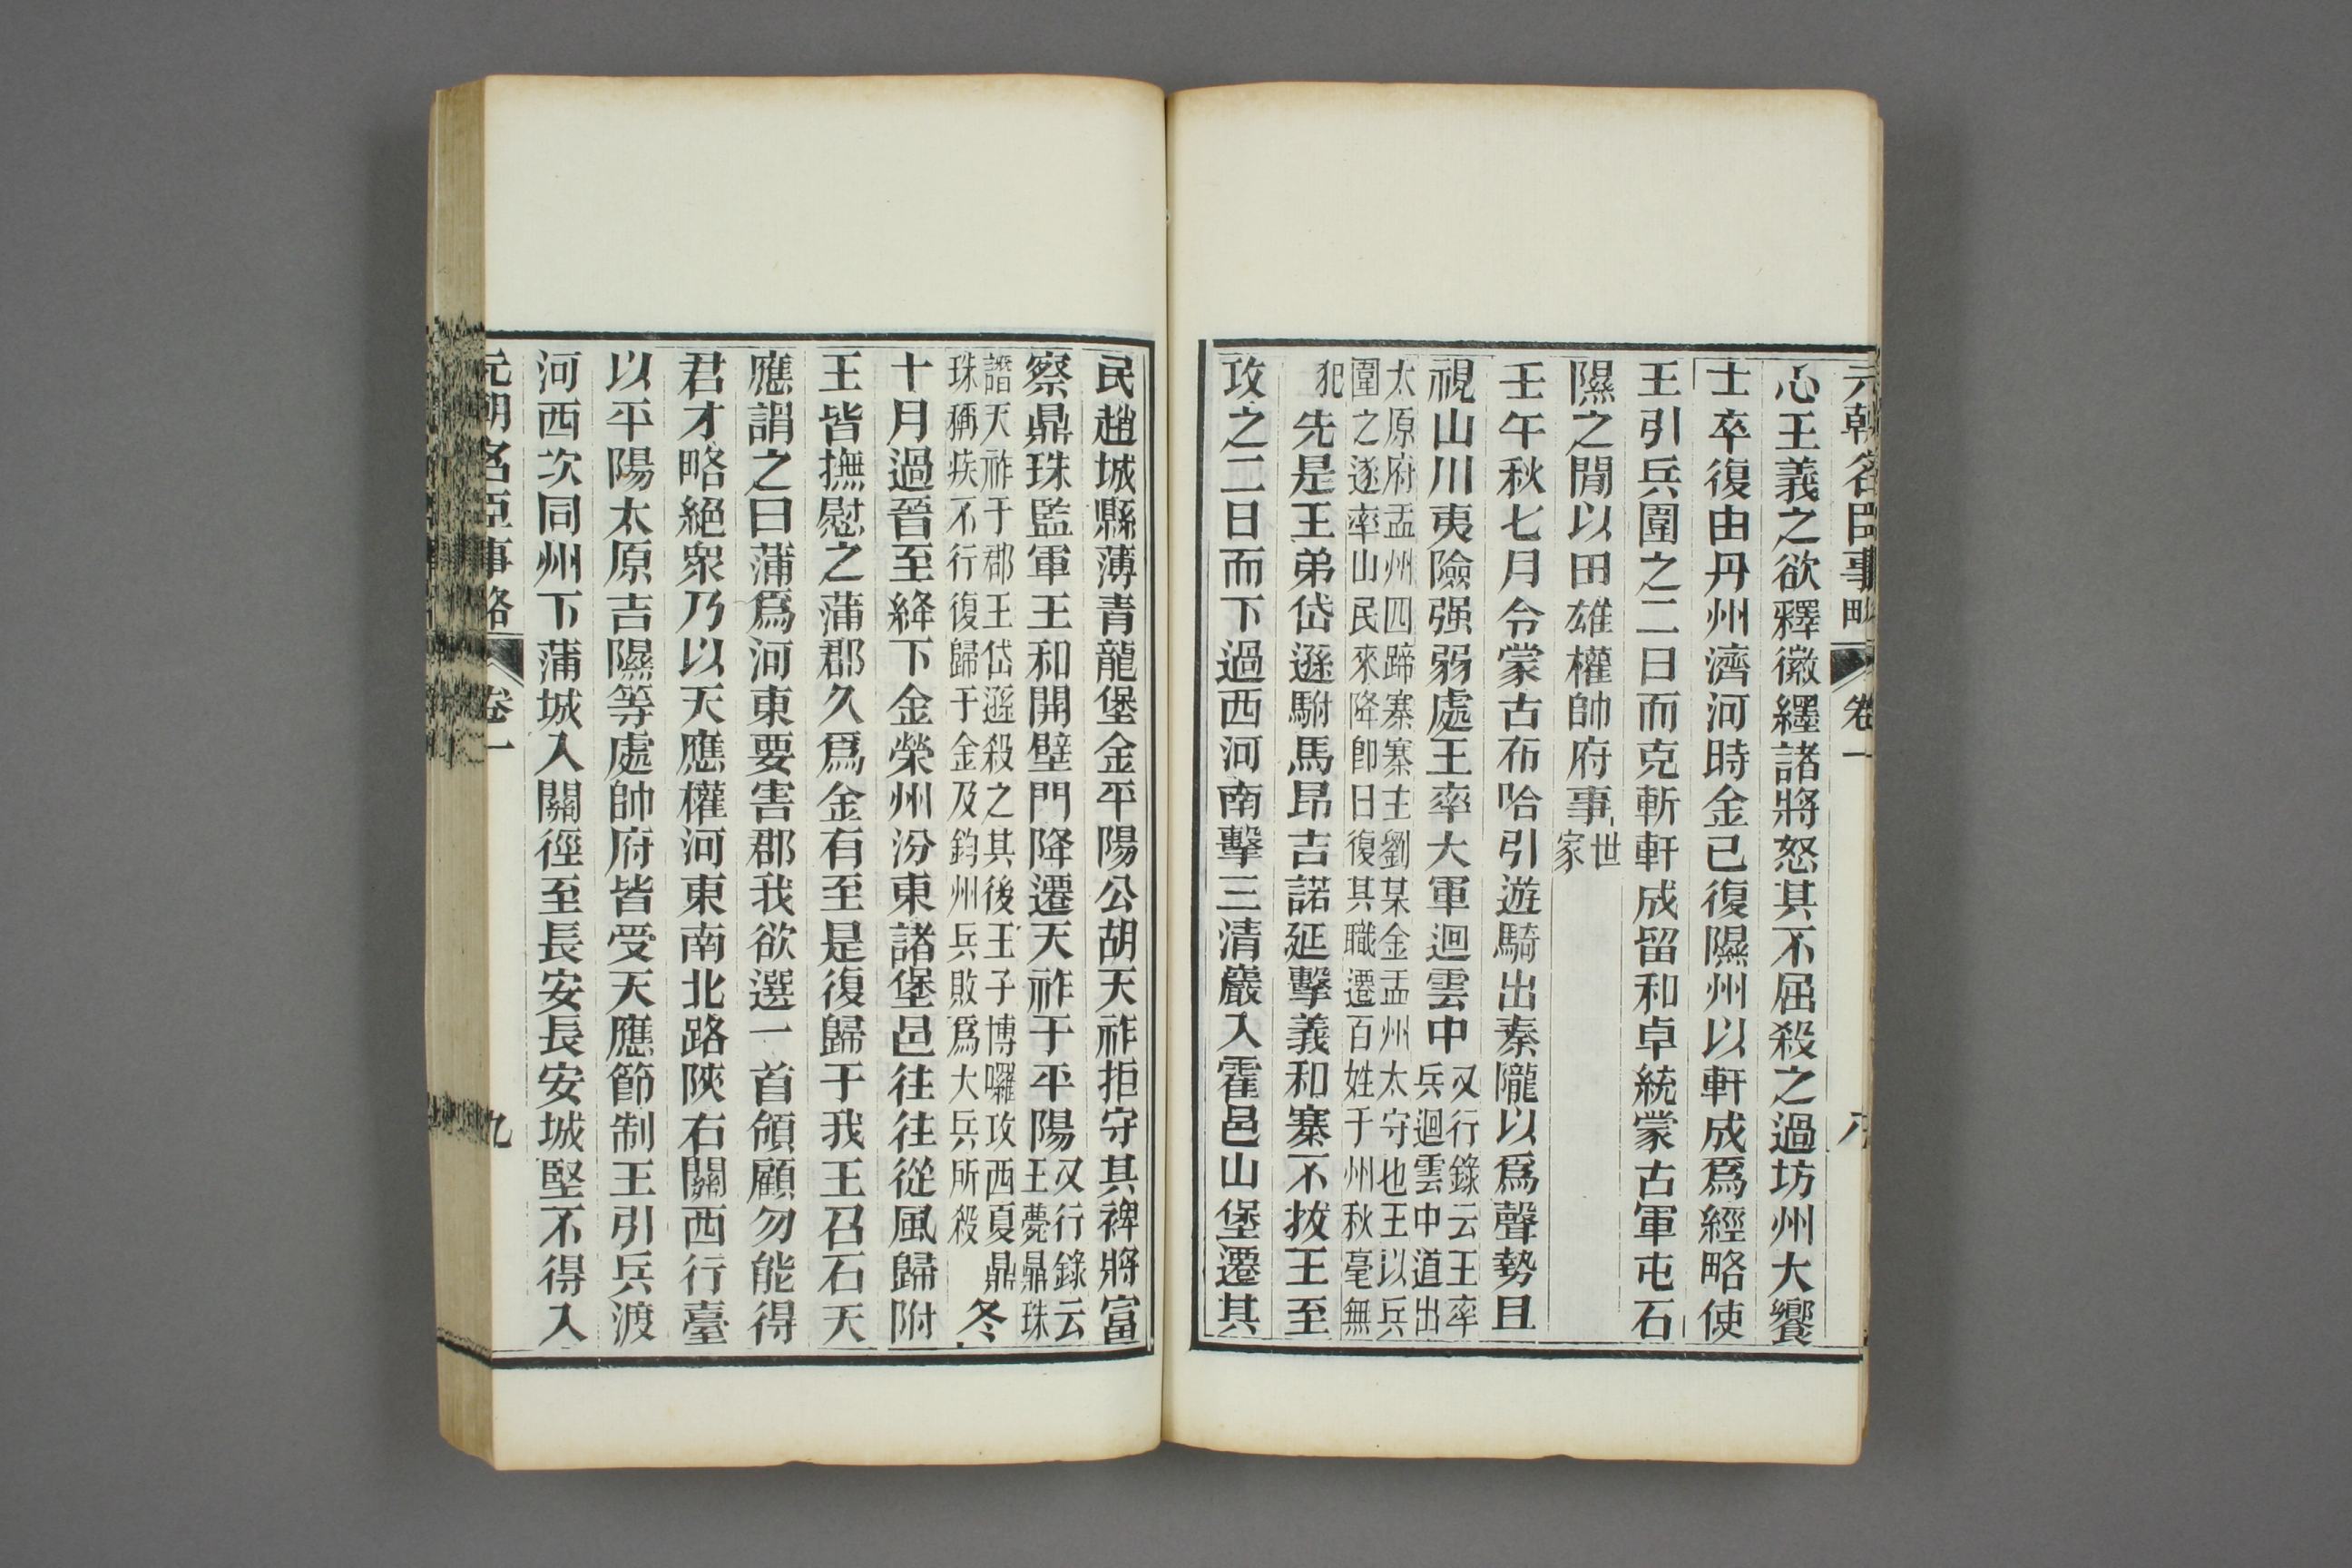 元朝名臣事略 卷一 八
心王義之欲釋徽纆諸將怒其不屈殺之過坊州大饗
士卒復由丹州濟河時金已復隰州以軒成爲經略使
王引兵圍之二日而克斬軒成留和卓統蒙古軍屯石
隰之閒以田雄權帥府事世
家
壬午秋七月令蒙古布哈引遊騎出秦隴以爲聲勢且
視山川夷險强弱處王率大軍迴雲中又行錄云王率
兵迴雲中道出
太原府盂州四蹄寨寨主劉某金盂州太守也王以兵
圍之遂率山民來降卽日復其職遷百姓于州秋毫無
犯先是王弟岱遜駙馬昂吉諾延擊義和寨不拔王至
攻之二日而下過西河南擊三清巖入霍邑山堡遷其
民趙城縣薄青龍堡金平陽公胡天祚拒守其裨將富
察鼎珠監軍王和開壁門降遷天祚于平陽又行錄云
王薨鼎珠
譖天祚于郡王岱遜殺之其後王子博囉攻西夏鼎
珠稱疾不行復歸于金及鈞州兵敗爲大兵所殺冬
十月過晉至絳下金榮州汾東諸堡邑往往從風歸附
王皆撫慰之蒲郡久爲金有至是復歸于我王召石天
應謂之曰蒲爲河東要害郡我欲選一首領顧勿能得
君才略絕衆乃以天應權河東南北路陝右關西行臺
以平陽太原吉隰等處帥府皆受天應節制王引兵渡
河西次同州下蒲城入關徑至長安長安城堅不得入
元朝名臣事略 卷一 九